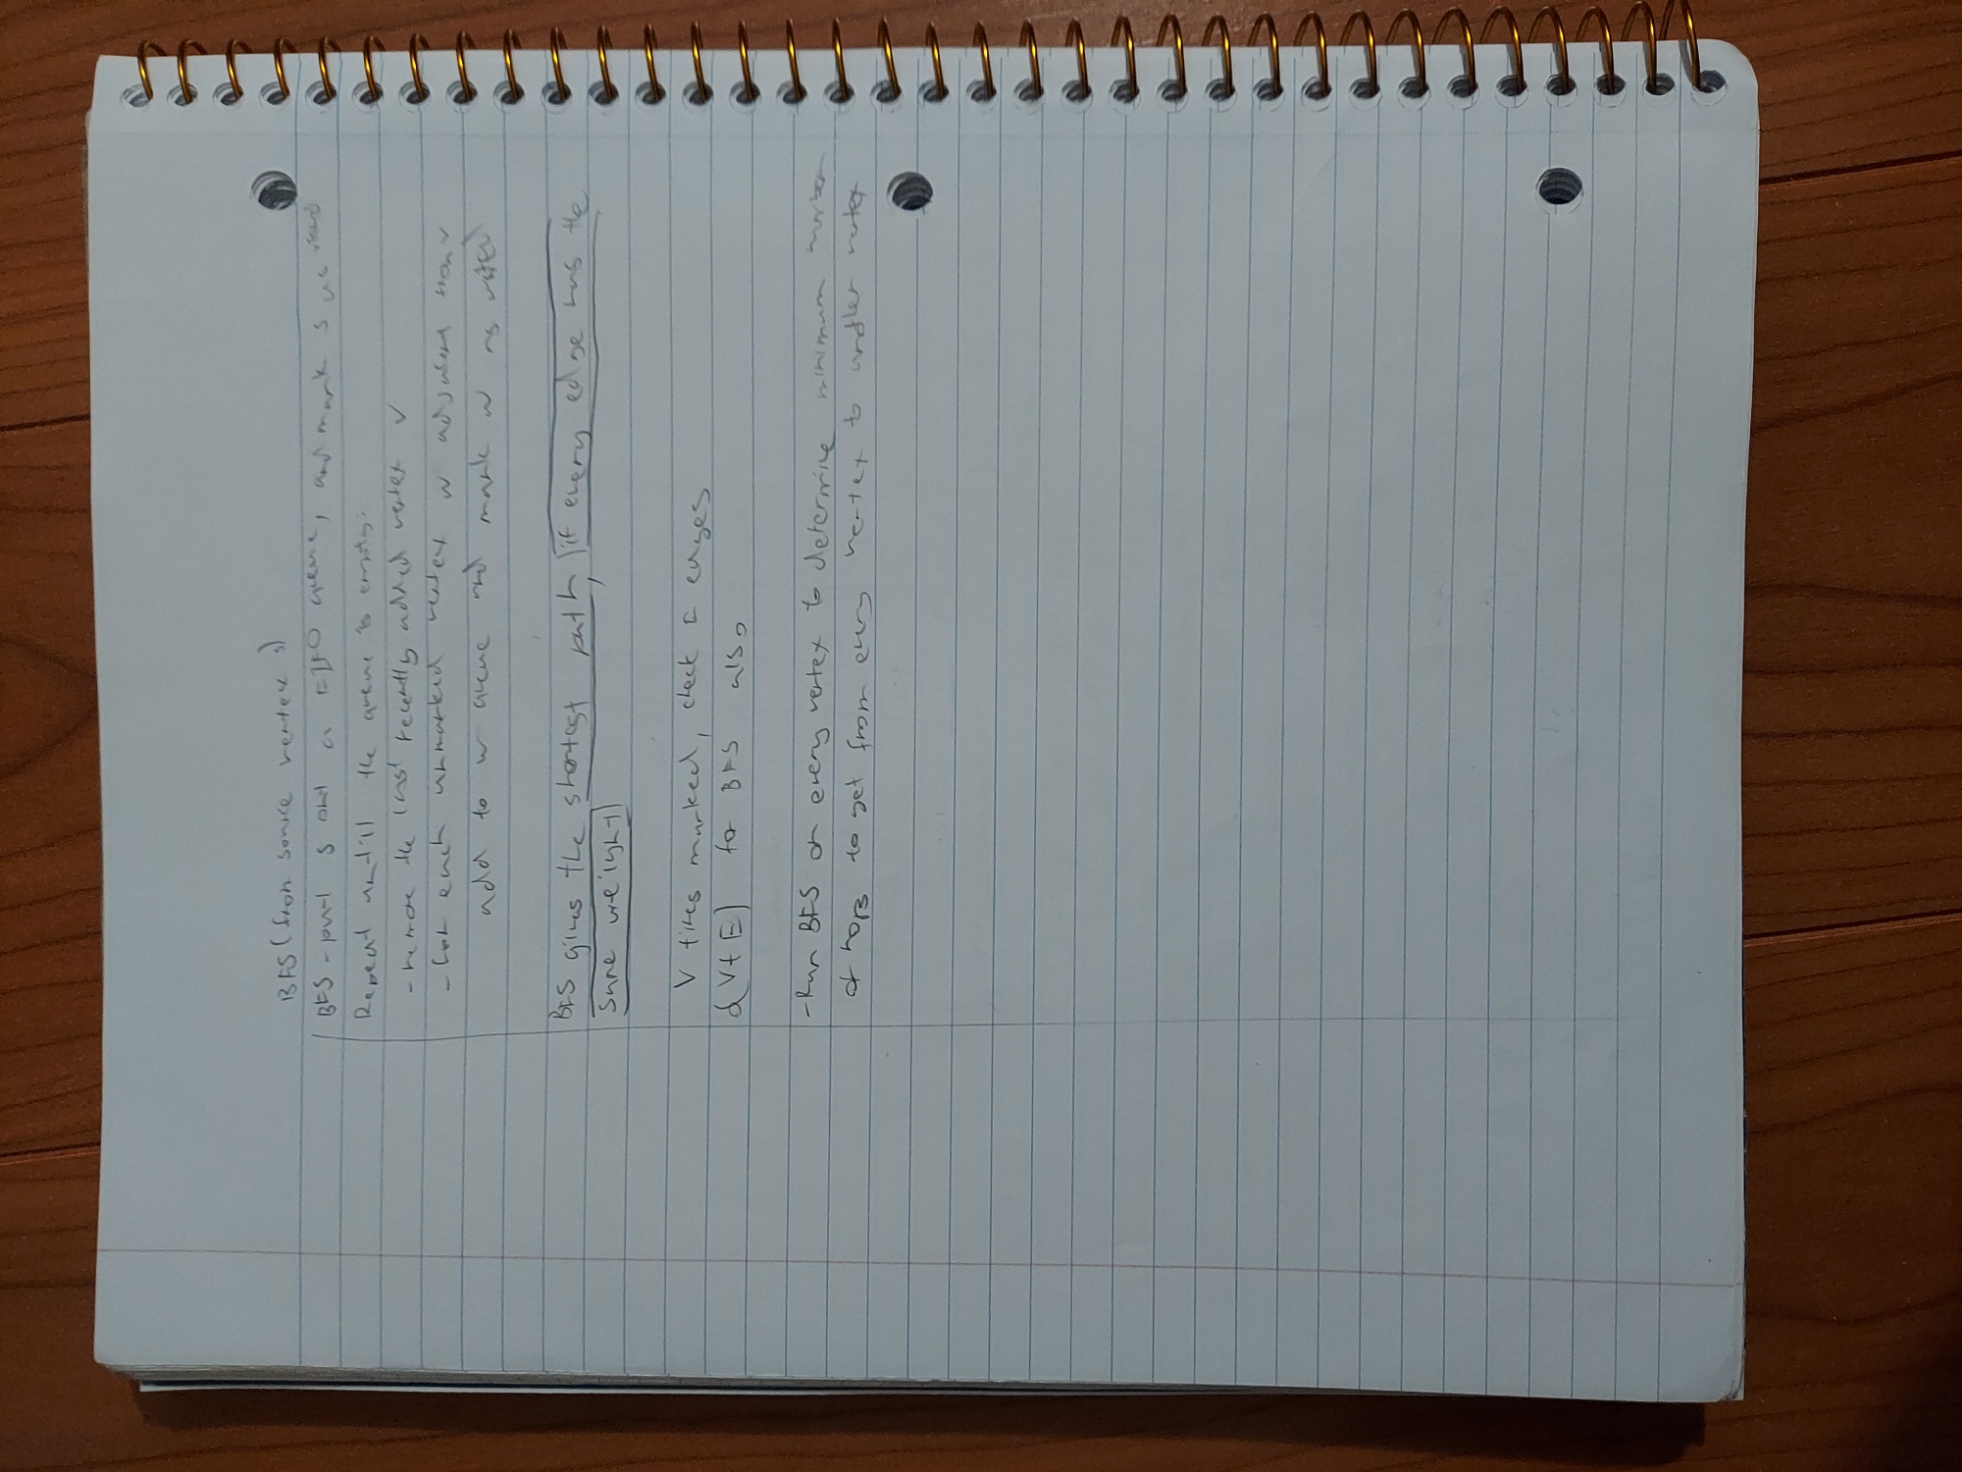 BFS (from source vertex s)
BFS - put s onto a FIFO queue, and mark s as visited
Repeat until the queue is empty:
- remove the least recently added vertex v
- for each unmarked vertex w adjacent from v
add to w queue and mark w as visited
BFS gives the shortest path, if every edge has the
same weight
V times marked, check E edges
O(V+E) for BFS also
- Run BFS on every vertex to determine minimum number
of hops to get from every vertex to another vertex